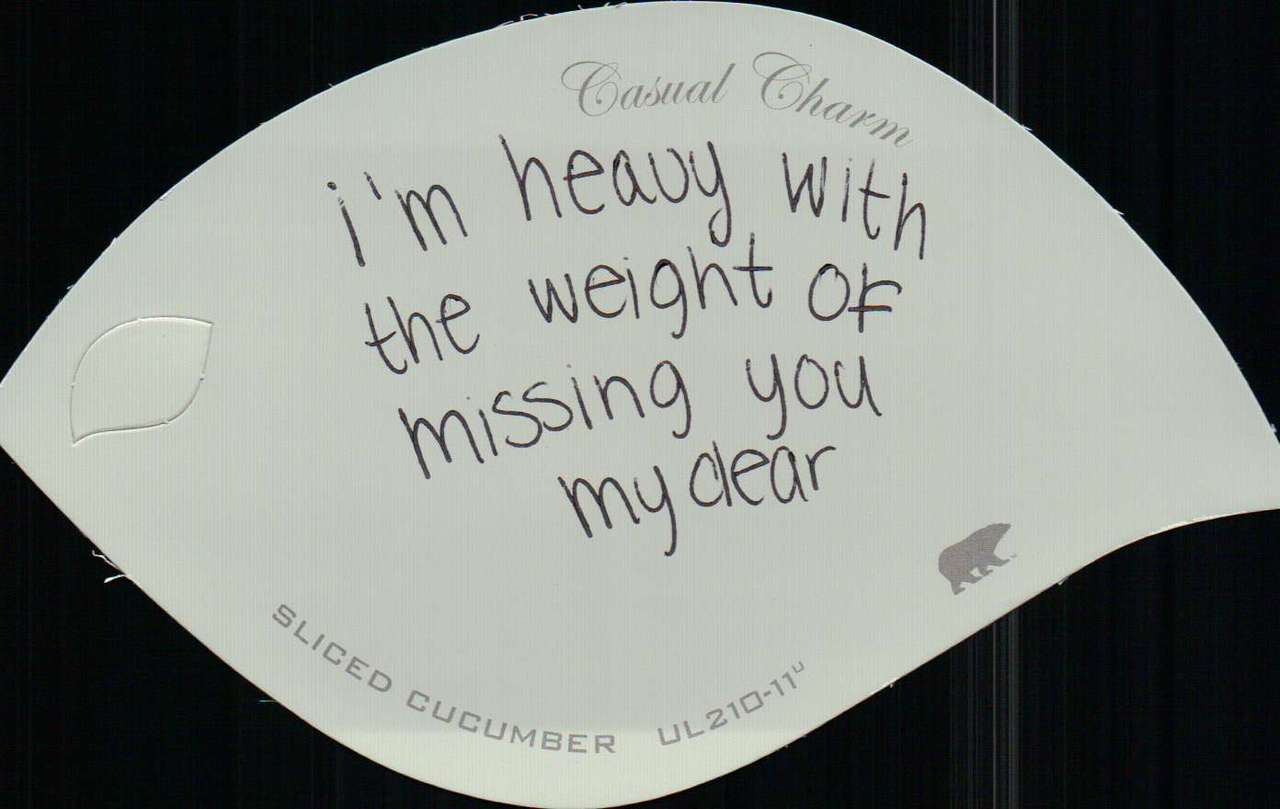 Casual Charm
i'm heavy with
the weight of
missing you
my dear
SLICED CUCUMBER UL210-11ᵁ